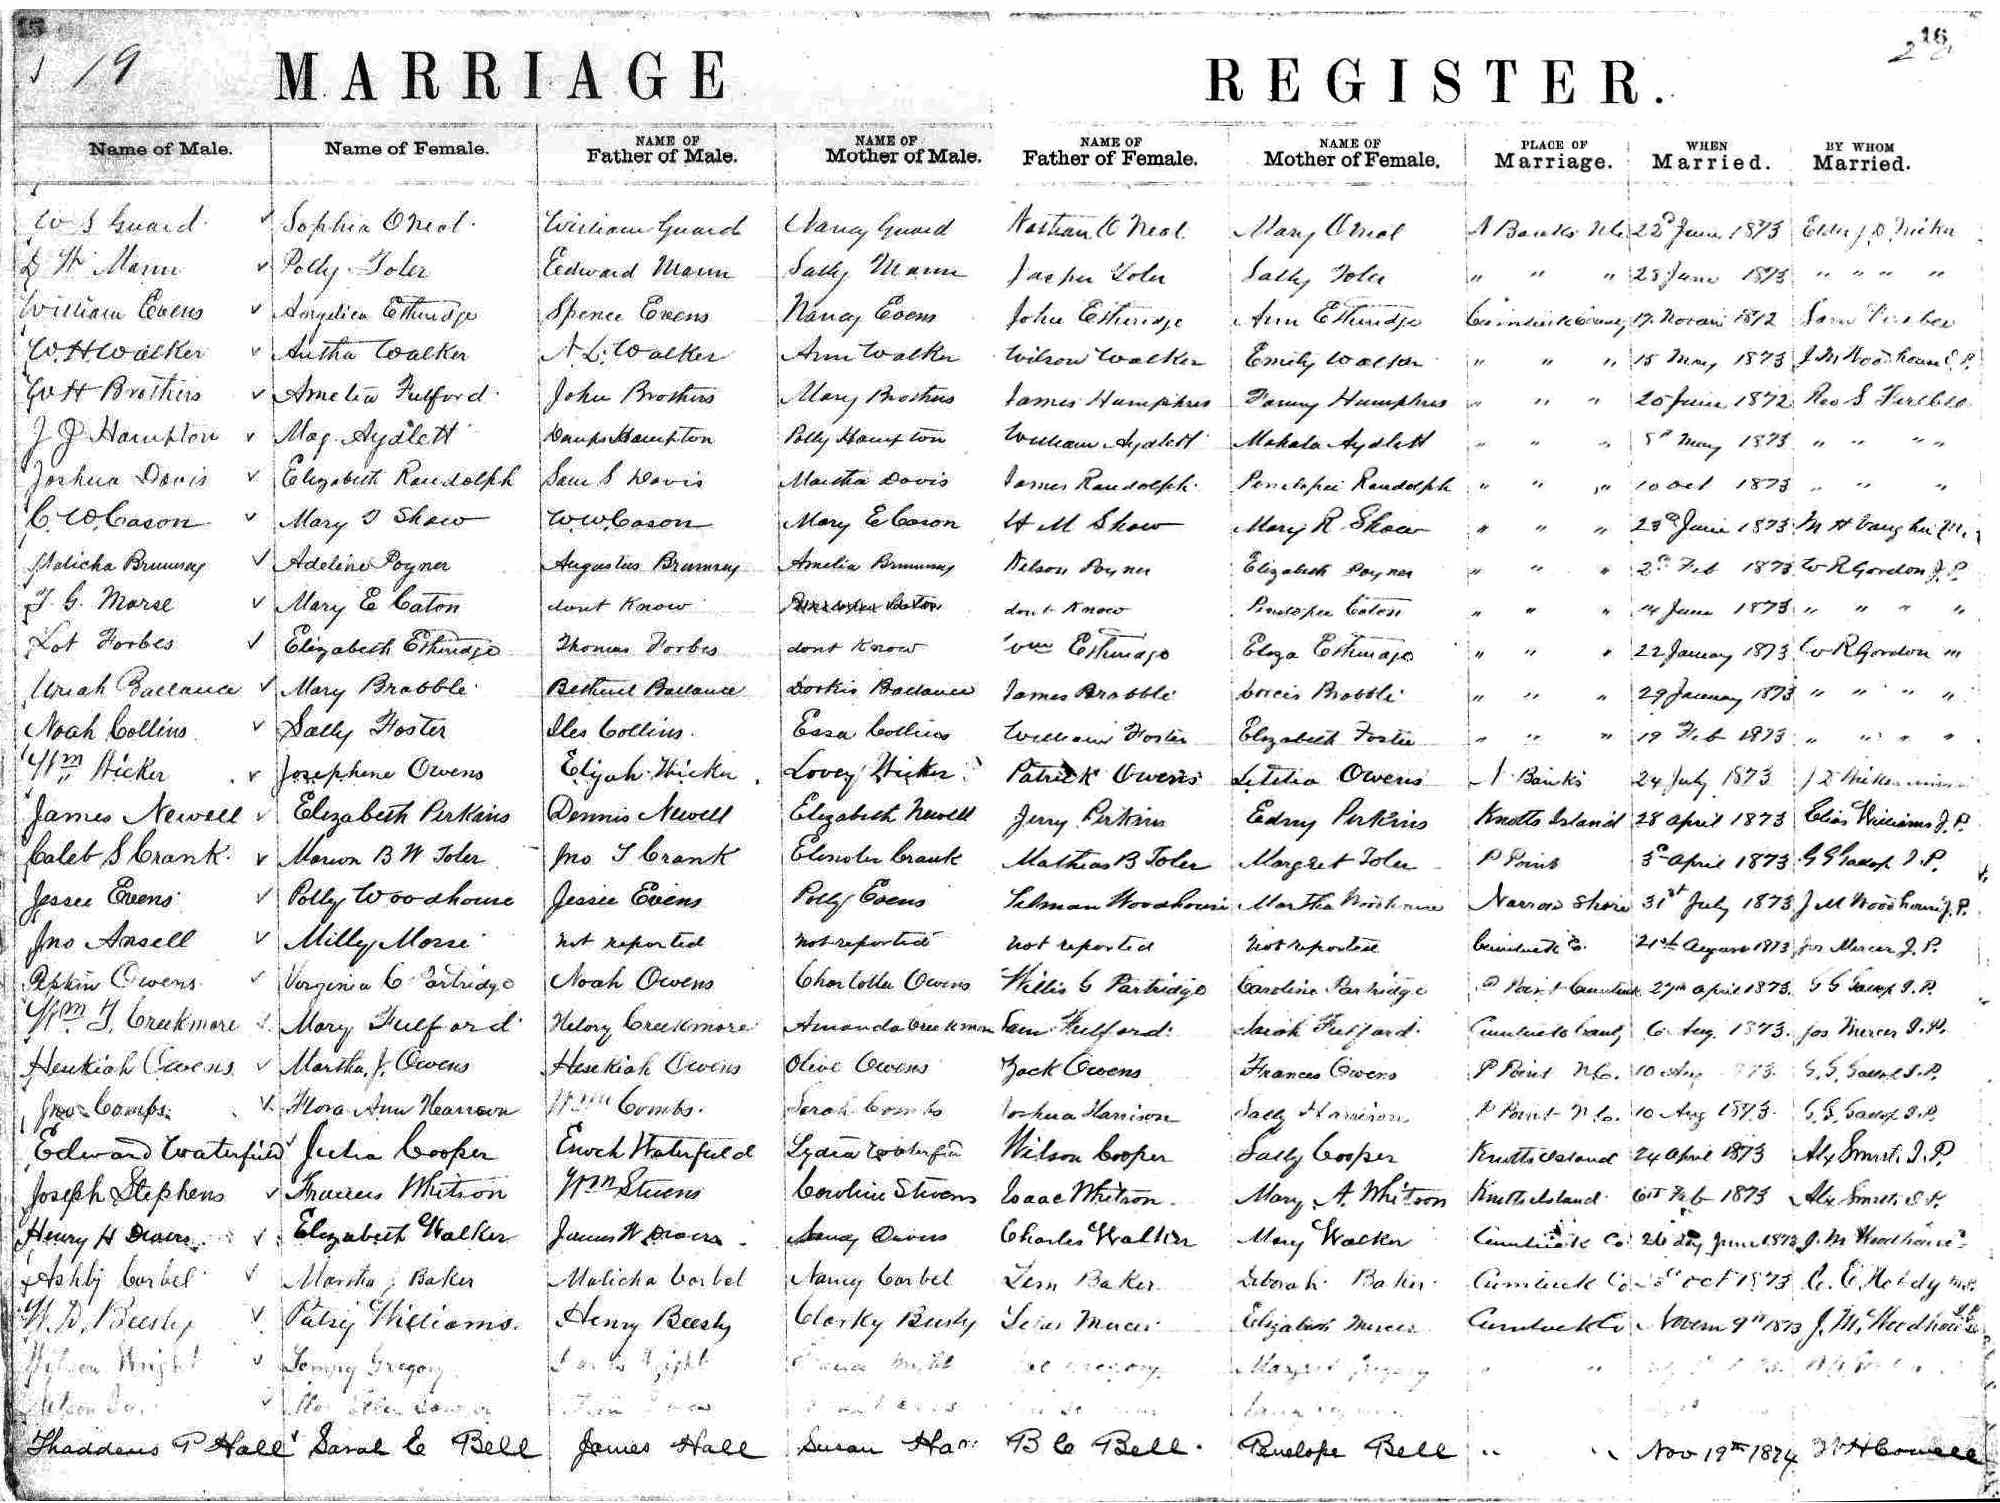 15 16
19 20
MARRIAGE REGISTER.
Name of Male. Name of Female. NAME OF Father of Male. NAME OF Mother of Male. NAME OF Father of Female. NAME OF Mother of Female. PLACE OF Marriage. WHEN Married. BY WHOM Married.
W S Guard Sophia O Neal William Guard Nancy Guard Nathan O Neal Mary O Neal N Banks N.C. 22d June 1873 Elder J. D.
D W Mann Polly Toler Edward Mann Sally Mann Jasper Toler Sally Toler " " " 23 June 1873 " " " "
William Evens Angelica Etheridge Spence Evens Nancy Evens John Etheridge Ann Etheridge Currituck County 17 1872 Sam
W. H Walker Autha Walker N. L. Walker Ann Walker Wilson Walker Emily Walker " " " 15 May 1873 J M Woodhouse J. P.
W H Brothers Amelia Fulford John Brothers Mary Brothers James Humphres Fanny Humphres " " " 20 June 1872 Rev S
J J Hampton Mag. Aydlett Hampton Polly Hampton William Aydlett Mahala Aydlett " " 8th May 1873 " " " "
Joshua Davis Elizabeth Randolph Sam S Davis Martha Davis James Randolph Penelopee Randolph " " " 10 Oct 1873 " " "
C. W. Cason Mary J Shaw W. W. Cason Mary E Cason H M Shaw Mary R Shaw " " " 23d June 1873 M H Vaughn
Malicha Brumsey Adeline Poyner Augustus Brumsey Amelia Brumsey Nelson Poyner Elizabeth Poyner " " " 2d Feb 1873 W R Gordon J. P.
T. G. Morse Mary E Caton dont Know dont Know Penelopee Caton " " " 14 June 1873 " " " "
Lot Forbes Elizabeth Etheridge Thomas Forbes dont Know Wm Etheridge Eliza Etheridge " " " 22 January 1873 W R Gordon "
Uriah Ballance Mary Brabble Bethuel Ballance Dorkis Ballance James Brabble Brabble " " " 29 January 1873 " " " "
Noah Collins Sally Foster Iles Collins Essa Collins William Foster Elizabeth Foster " " " 19 Feb 1873 " " " "
Wm Hicker Josephene Owens Elijah Hicker Lovey Hicker Patrick Owens Letitia Owens N Banks 24 July 1873 J D
James Newell Elizabeth Perkins Dennis Newell Elizabeth Newell Jerry Perkins Edny Perkins Knotts Island 28 april 1873 Elias Williams J. P.
Caleb S Crank Marion B W Toler Jno T Crank Elender Crank Mathias B Toler Margret Toler P Point 3d april 1873 G G Gallop J. P.
Jessee Evens Polly Woodhouse Jessee Evens Polly Evens Tilman Woodhouse Martha Woodhouse Narrow Shore 31st July 1873 J M Woodhouse J. P.
Jno Ansell Milly Morse not reported not reported not reported not reported Currituck Co. 21st August 1873 Jos Mercer J. P.
Pipkin Owens Virginia C Partridge Noah Owens Charlotte Owens Willis G Partridge Caroline Partridge P Point Currituck 27th april 1873 G G Gallop J. P.
Wm T. Creekmore Mary Fulford Hilory Creekmore Amanda Creekmore Sam Fulford Sarah Fulford Currituck County 6 Aug. 1873 Jos Mercer J. P.
Hesekiah Owens Martha J. Owens Hesekiah Owens Olive Owens Zack Owens Frances Owens P Point N.C. 10 Aug 1873 G. G. Gallop J. P.
Jno Combs Flora Ann Harrison Wm Combs Sarah Combs Joshua Harrison Sally Harrison P Point N.C. 10 Aug 1873 G. G. Gallop J. P.
Edward Waterfield Julia Cooper Enoch Waterfield Lydia Waterfield Wilson Cooper Sally Cooper Knotts Island 24 april 1873 Alx Smith J. P.
Joseph Stephens Frances Whitson Wm Stevens Caroline Stevens Isaac Whitson Mary A. Whitson Knotts Island 6th Feb 1873 Alx Smith J. P.
Henry H Divers Elizabeth Walker James W Divers Nancy Divers Charles Walker Mary Walker Currituck Co 26 day June 1873 J. M. Woodhouse
Ashby Corbel Martha J Baker Malicha Corbel Nancy Corbel Lem Baker Deborah Baker Currituck Co Oct 1873
W. D. Beesly Patsy Williams Henry Beesly Clarky Beesly Mercer Elizabeth Mercer Currituck Co Novem 9th 1873 J. M. Woodhouse
Wright Gregory Gregory Margret Gregory " "
Thaddeus P Hall Sarah C Bell James Hall Susan Hall B C Bell Penelope Bell " " Nov 19th 1874 W H Cowell